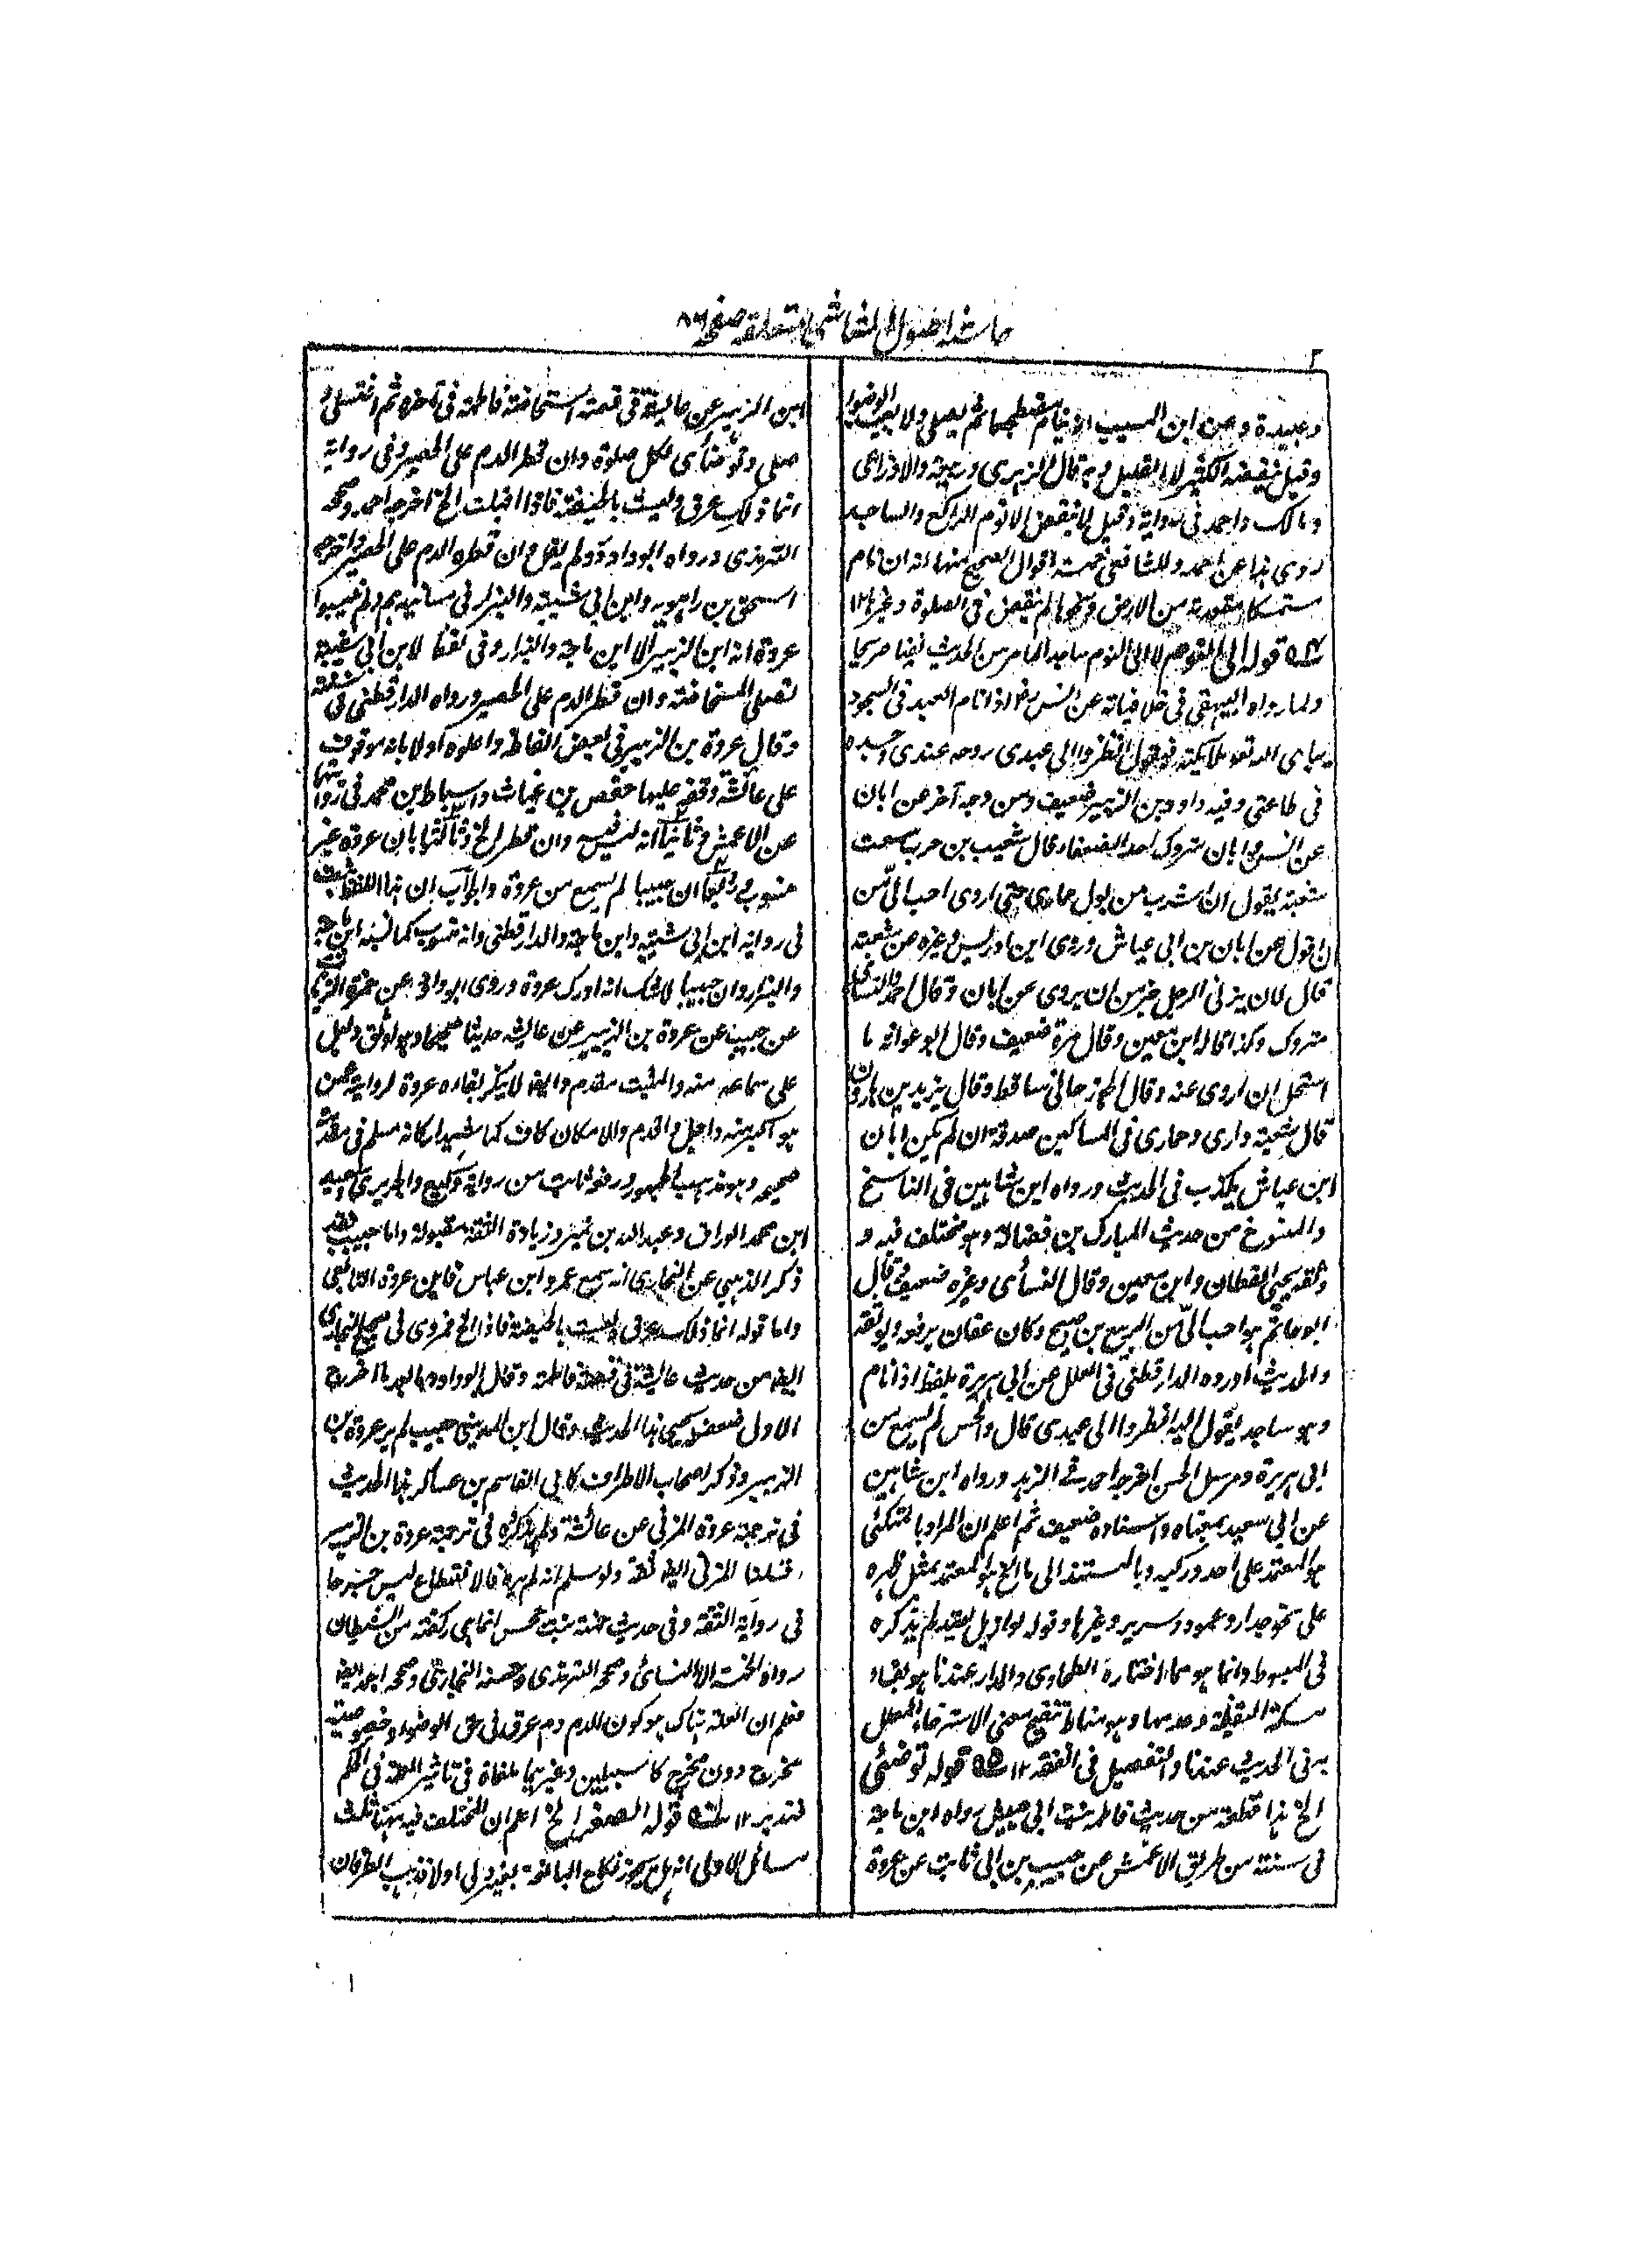 حاشية اصول الشاشى متعلقه صفحه ٨٦
٢
وعبيدة وعن ابن المسيب انه ينام مضطجعا ثم يصلى ولا يعيد الوضوء
وقيل ينقضه الكثير لا القليل وبه قال الزهرى وربيعة والاوزاعى
ومالك واحمد فى رواية وقيل لا ينقض الا نوم الراكع والساجد
روى هذا عن احمد وللشافعى خمسة اقوال الصحيح منها انه ان نام
متمكنا مقعدته من الارض ونحوها لم ينقض فى الصلوة وغيرها ١٢
قوله الى القوم لا الى النوم ساجدا لما مر من الحديث ايضا صريحا
ولما رواه البيهقى فى خلافياته عن انس رض اذا نام العبد فى السجود
يباهى الله تعم ملآئكته فيقول انظروا الى عبدى روحه عندى وجسده
فى طاعتى وفيه داود بن الزبير ضعيف ومن وجه آخر عن ابان
عن انس وابان متروك احد الضعفاء قال شعيب بن حرب سمعت
شعبة يقول ان اشرب من بول حمارى حتى اروى احب الىّ من
ان اقول عن ابان بن ابى عياش وروى ابن ادريس وغيره عن شعبة
قال لان يزنى الرجل خير من ان يروى عن ابان وقال احمد والنسائى
متروك وكذا قاله ابن معين وقال مرة ضعيف وقال ابو عوانة ما
استحل ان اروى عنه وقال الجوزجانى ساقط وقال يزيد بن هارون
قال شعبة دارى وحمارى فى المساكين صدقة ان لم يكن ابان
ابن عياش يكذب فى الحديث ورواه ابن شاهين فى الناسخ
والمنسوخ من حديث المبارك بن فضالة وهو مختلف فيه و
وثقه يحيى القطان وابن معين وقال النسائى وغيره ضعيف وقال
ابو حاتم هو احب الىّ من الربيع بن صبيح وكان عفان يرفعه ويوثقه
والحديث اورده الدارقطنى فى العلل عن ابى هريرة بلفظ اذا نام
وهو ساجد يقول الله انظروا الى عبدى قال والحسن لم يسمع من
ابى هريرة ومرسل الحسن اخرجه احمد فى الزهد ورواه ابن شاهين
عن ابى سعيد بمعناه واسناده ضعيف ثم اعلم ان المراد بالمتكئى
هو المعتمد على احد وركيه وبالمستند الى ما الخ هو المعتمد بمثل ظهره
على نحو جدار وعمود وسرير وغيرها وقوله لو ازيل لقيد لم يذكره
فى المبسوط وانما هو مما اختاره الطحاوى والمدار عندنا هو بقاء
مسكة اليقظة وعدمها وهو مناط تنقيح معنى الاسترخاء المعلل
به فى الحديث عندنا والتفصيل فى الفقه ١٢ قوله توضئى
الخ هذا قطعة من حديث فاطمة بنت ابى حبيش رواه ابن ماجة
فى سننه من طريق الاعمش عن حبيب بن ابى ثابت عن عروة
ابن الزبير عن عائشة فى قصة استحاضة فاطمة فى آخره ثم اغتسلى و
صلى وتوضئى لكل صلوة وان قطر الدم على الحصير وفى رواية
انما ذلك عرق وليست بالحيضة فاذا اقبلت الخ اخرجه احمد وصححه
الترمذى ورواه ابو داود ولم يقل وان قطر الدم على الحصير واخرجه
اسحق بن راهويه وابن ابى شيبة والبزار فى مسانيدهم ولم ينسبوا
عروة انه ابن الزبير الا ابن ماجة والبزار وفى لفظ لابن ابى شيبة
تصلى المستحاضة وان قطر الدم على الحصير ورواه الدارقطنى فى سننه
وقال عروة بن الزبير فى بعض الفاظه واعلوه اولا بانه موقوف
على عائشة وقفه عليها حفص بن غياث واسباط بن محمد فى روايتهما
عن الاعمش وثانيا انه ليس فيه وان قطر الخ وثالثا بان عروة غير
منسوب ورابعا ان حبيبا لم يسمع من عروة والجواب ان هذا اللفظ ثبت
فى رواية ابن ابى شيبة وابن ماجة والدارقطنى وانه منسوب كما نسبه ابن ماجة
والبزار وان حبيبا لا شك انه ادرك عروة وروى ابو داود عن حمزة الزيات
عن حبيب عن عروة بن الزبير عن عائشة حديثا صحيحا وهو اوثق دليل
على سماعه منه والمثبت مقدم وايضا لا ينكر لقاءه عروة لروايته عمن
هو اكبر منه واجل واقدم والامكان كاف كما شيد اركانه مسلم فى مقدمة
صحيحه وهو مذهب الجمهور ورفعه ثابت من رواية وكيع والجريرى وسعيد
ابن محمد الوراق وعبد الله بن نمير وزيادة الثقة مقبولة واما حبيب فقد
ذكر الذهبى عن البخارى انه سمع عمر وابن عباس فاين عروة التابعى
واما قوله انما ذلك عرق وليست بالحيضة فاذا الخ فمروى فى صحيح البخارى
ايضا من حديث عائشة فى قصة فاطمة وقال ابو داود بعد ما اخرج
الاول ضعف يحيى هذا الحديث وقال ابن المدينى حبيب لم ير عروة بن
الزبير وذكر اصحاب الاطراف كابى القاسم بن عساكر هذا الحديث
فى ترجمة عروة المزنى عن عائشة ولم يذكره فى ترجمة عروة بن الزبير
قلنا المزنى ايضا ثقة ولو سلم انه لم يره فالانقطاع ليس جرحا
فى رواية الثقة وفى حديث حمنة بنت جحش انما هى ركضة من الشيطان
رواه الخمسة الا النسائى وصححه الترمذى وحسنه البخارى وصححه احمد ايضا
فعلم ان العلة هناك هو كون الدم دم عرق فى حق الوضوء وخصوصية
مخرج دون مخرج كالسبيلين وغيرهما ملغاة فى تاثير العلة فى الحكم
فتدبر ١٢ قوله الصغر الخ اعلم ان المختلف فيه ههنا ثلث
مسائل الاولى انه هل يجوز نكاح البالغة بغير ولى اولا فذهب الطرفان